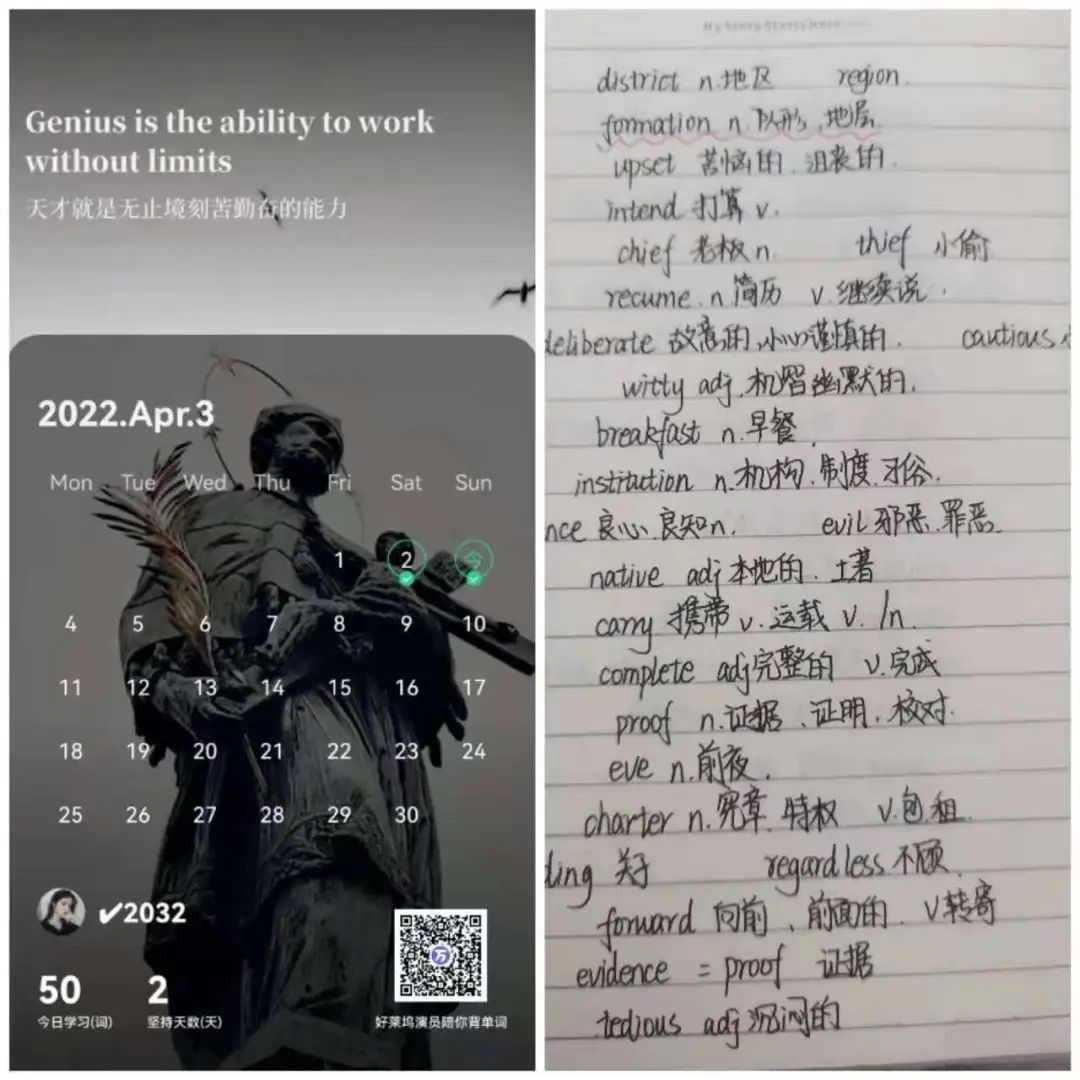 Genius is the ability to work
without limits
天才就是无止境刻苦勤奋的能力
2022.Apr.3
Mon Tue Wed Thu Fri Sat Sun
1 2 今
4 5 6 7 8 9 10
11 12 13 14 15 16 17
18 19 20 21 22 23 24
25 26 27 28 29 30
✔2032
50 2
今日学习(词) 坚持天数(天)
好莱坞演员陪你背单词
My Story Starts Here
district n.地区 region.
formation n.队形、地层
upset 苦恼的.沮丧的.
intend 打算 v.
chief 老板 n. thief 小偷
recume.n.简历 v.继续说.
deliberate 故意的,小心谨慎的. cautious
witty adj.机智幽默的.
breakfast n.早餐.
institution n.机构.制度.习俗.
nce 良心.良知n. evil 邪恶.罪恶.
native adj本地的.土著
carry 携带 v.运载 v. /n.
complete adj完整的 v.完成
proof n.证据、证明.校对.
eve n.前夜.
charter n.宪章.特权 v.包.租.
ding 关于 regardless 不顾.
forward 向前、前面的. v转寄
evidence = proof 证据
tedious adj沉闷的